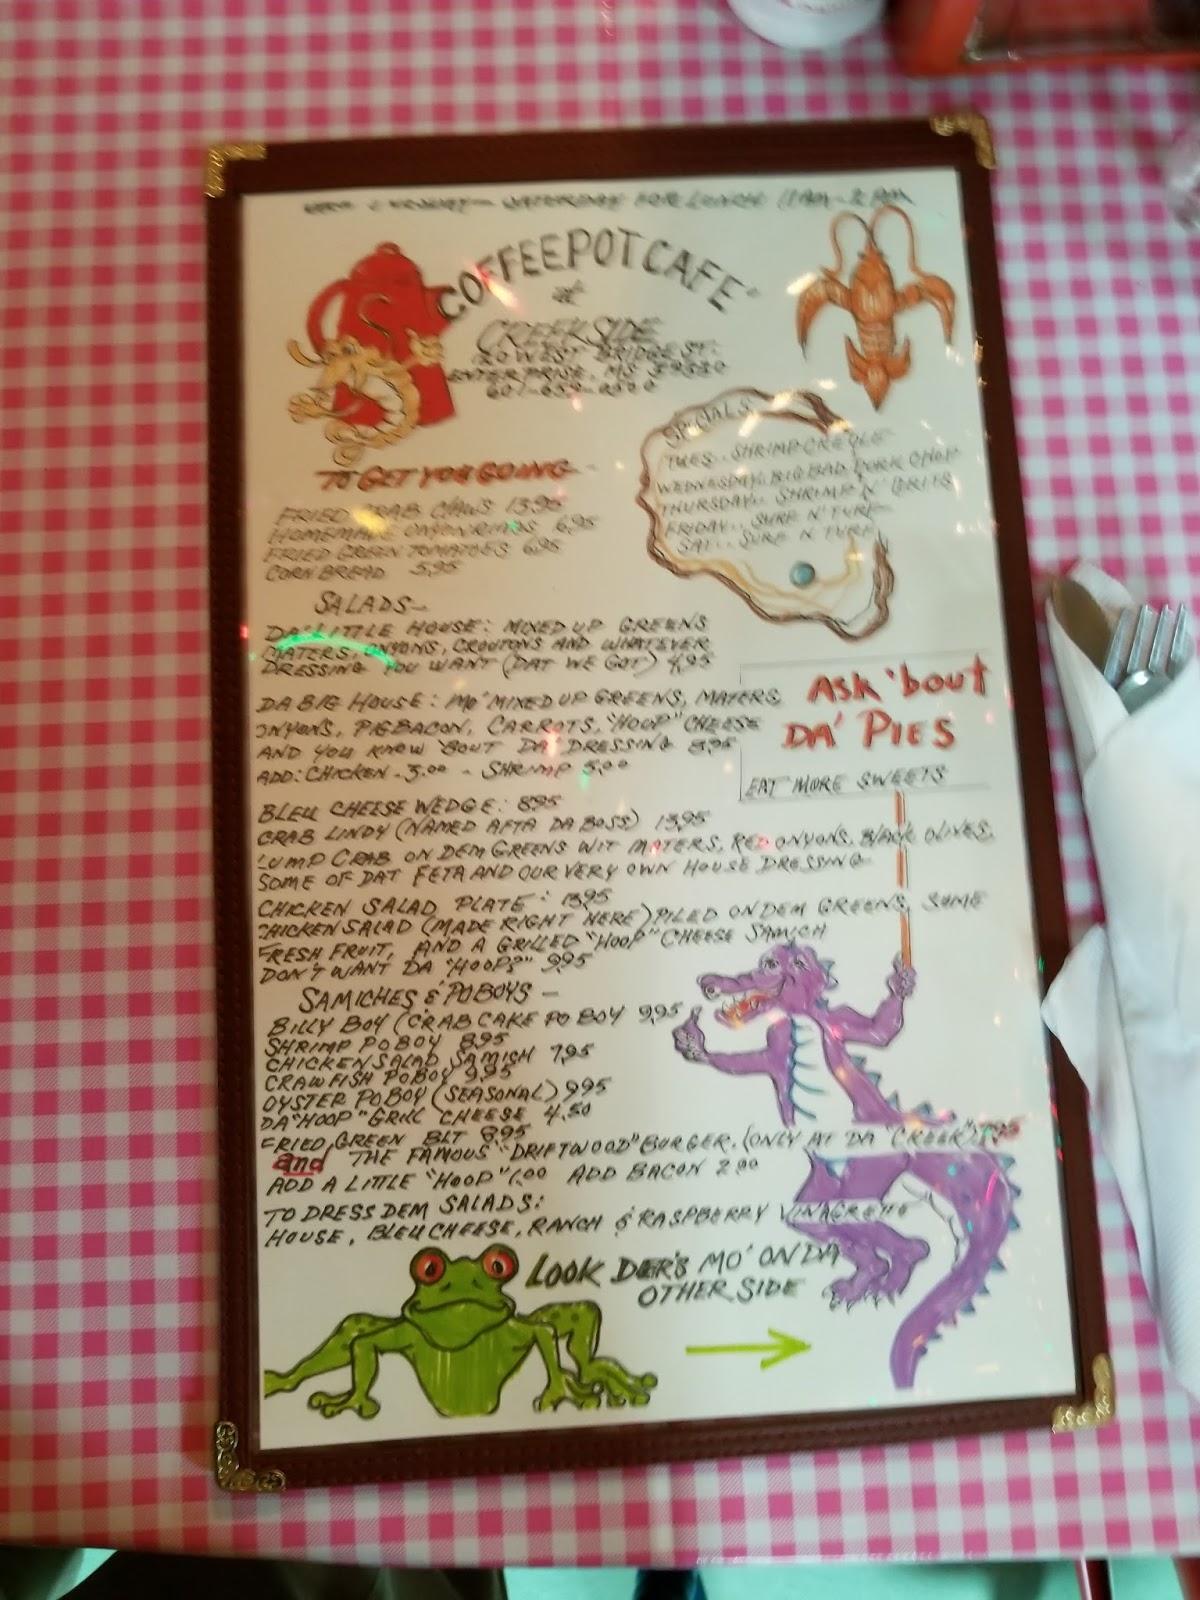 SATURDAY FOR LUNCH 11AM - 2PM
COFFEEPOT CAFE'
at
CREEKSIDE
WEST BRIDGE ST.
ENTERPRISE, MS 39330
601-659-0500
SPECIALS
TUES.. SHRIMP CREOLE
WEDNESDAY.. BIG BAD PORK CHOP
THURSDAY.. SHRIMP N' GRITS
FRIDAY.. SURF N' TURF
SAT... SURF N TURF
TO GET YOU GOING -
FRIED CRAB CLAWS 13.95
HOMEMADE ONYON RINGS 6.95
FRIED GREEN TOMATOES 6.95
CORN BREAD 5.95
SALADS -
DA' LITTLE HOUSE: MIXED UP GREENS
MATERS, ONYONS, CROUTONS AND WHATEVER
DRESSING YOU WANT (DAT WE GOT) 4.95
DA BIG HOUSE: MO' MIXED UP GREENS, MATERS,
ONYONS, PIGBACON, CARROTS, "HOOP" CHEESE
AND YOU KNOW 'BOUT DA' DRESSING 8.95
ADD: CHICKEN - 3.00 - SHRIMP 5.00
ASK 'bout
DA' PIES
EAT MORE SWEETS
BLEU CHEESE WEDGE: 8.95
CRAB LINDY (NAMED AFTA DA BOSS) 13.95
LUMP CRAB ON DEM GREENS WIT MATERS, RED ONYONS, BLACK OLIVES,
SOME OF DAT FETA AND OUR VERY OWN HOUSE DRESSING
CHICKEN SALAD PLATE: 13.95
CHICKEN SALAD (MADE RIGHT HERE) PILED ON DEM GREENS, SOME
FRESH FRUIT, AND A GRILLED "HOOP" CHEESE SAMICH
DON'T WANT DA "HOOP?" 9.95
SAMICHES & PO BOYS -
BILLY BOY (CRAB CAKE PO BOY 9.95
SHRIMP PO BOY 8.95
CHICKEN SALAD SAMISH 7.95
CRAWFISH PO BOY 9.95
OYSTER PO BOY (SEASONAL) 9.95
DA "HOOP" GRILL CHEESE 4.50
FRIED GREEN BLT 8.95
and THE FAMOUS "DRIFTWOOD" BURGER. (ONLY AT DA "CREEK") 7.95
ADD A LITTLE "HOOP" 1.00 ADD BACON 2.00
TO DRESS DEM SALADS:
HOUSE, BLEU CHEESE, RANCH & RASPBERRY VINAGRETTE
LOOK DER'S MO' ON DA
OTHER SIDE